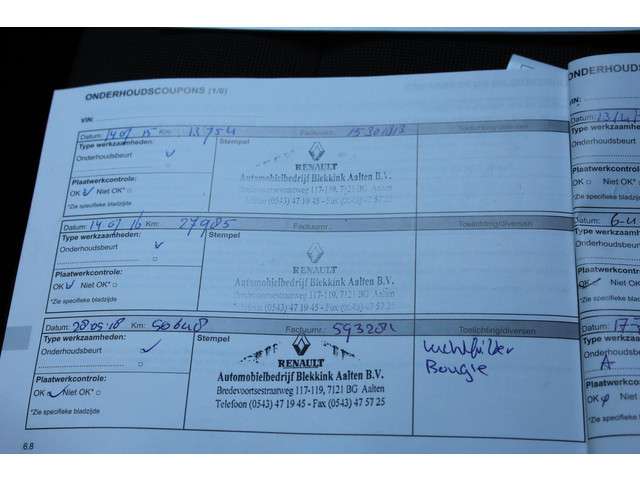 ONDERHOUDSCOUPONS (1/6)
VIN:
Datum: 14 01 15 Km: 13754 Factuurnr.: Toelichting/diversen
Type werkzaamheden: Stempel
Onderhoudsbeurt ✓
RENAULT
Automobielbedrijf Blekkink Aalten B.V.
Bredevoortsestraatweg 117-119, 7121 BG Aalten
Telefoon (0543) 47 19 45 - Fax (0543) 47 57 25
Plaatwerkcontrole:
OK ✓ Niet OK* □
*Zie specifieke bladzijde
Datum: 14 01 16 Km: 27985 Factuurnr.: Toelichting/diversen
Type werkzaamheden: Stempel
Onderhoudsbeurt ✓
RENAULT
Automobielbedrijf Blekkink Aalten B.V.
Bredevoortsestraatweg 117-119, 7121 BG Aalten
Telefoon (0543) 47 19 45 - Fax (0543) 47 57 25
Plaatwerkcontrole:
OK ✓ Niet OK* □
*Zie specifieke bladzijde
Datum: 28 05 18 Km: 50648 Factuurnr.: 593281 Toelichting/diversen
Type werkzaamheden: Stempel
Onderhoudsbeurt ✓
RENAULT
Automobielbedrijf Blekkink Aalten B.V.
Bredevoortsestraatweg 117-119, 7121 BG Aalten
Telefoon (0543) 47 19 45 - Fax (0543) 47 57 25
Luchtfilter
Bougie
Plaatwerkcontrole:
OK ✓ Niet OK* □
*Zie specifieke bladzijde
6.8
ONDERHOUD
VIN:
Datum:
Type werkzaam
Onderhoudsbeu
Plaatwerkcon
OK
*Zie specifieke
Datum: 6-4
Type werkza
Onderhouds
Plaatwerkco
*Zie specifiek
Datum: 17
Type werk
Onderhoud
A
Plaatwerk
OK
*Zie specif